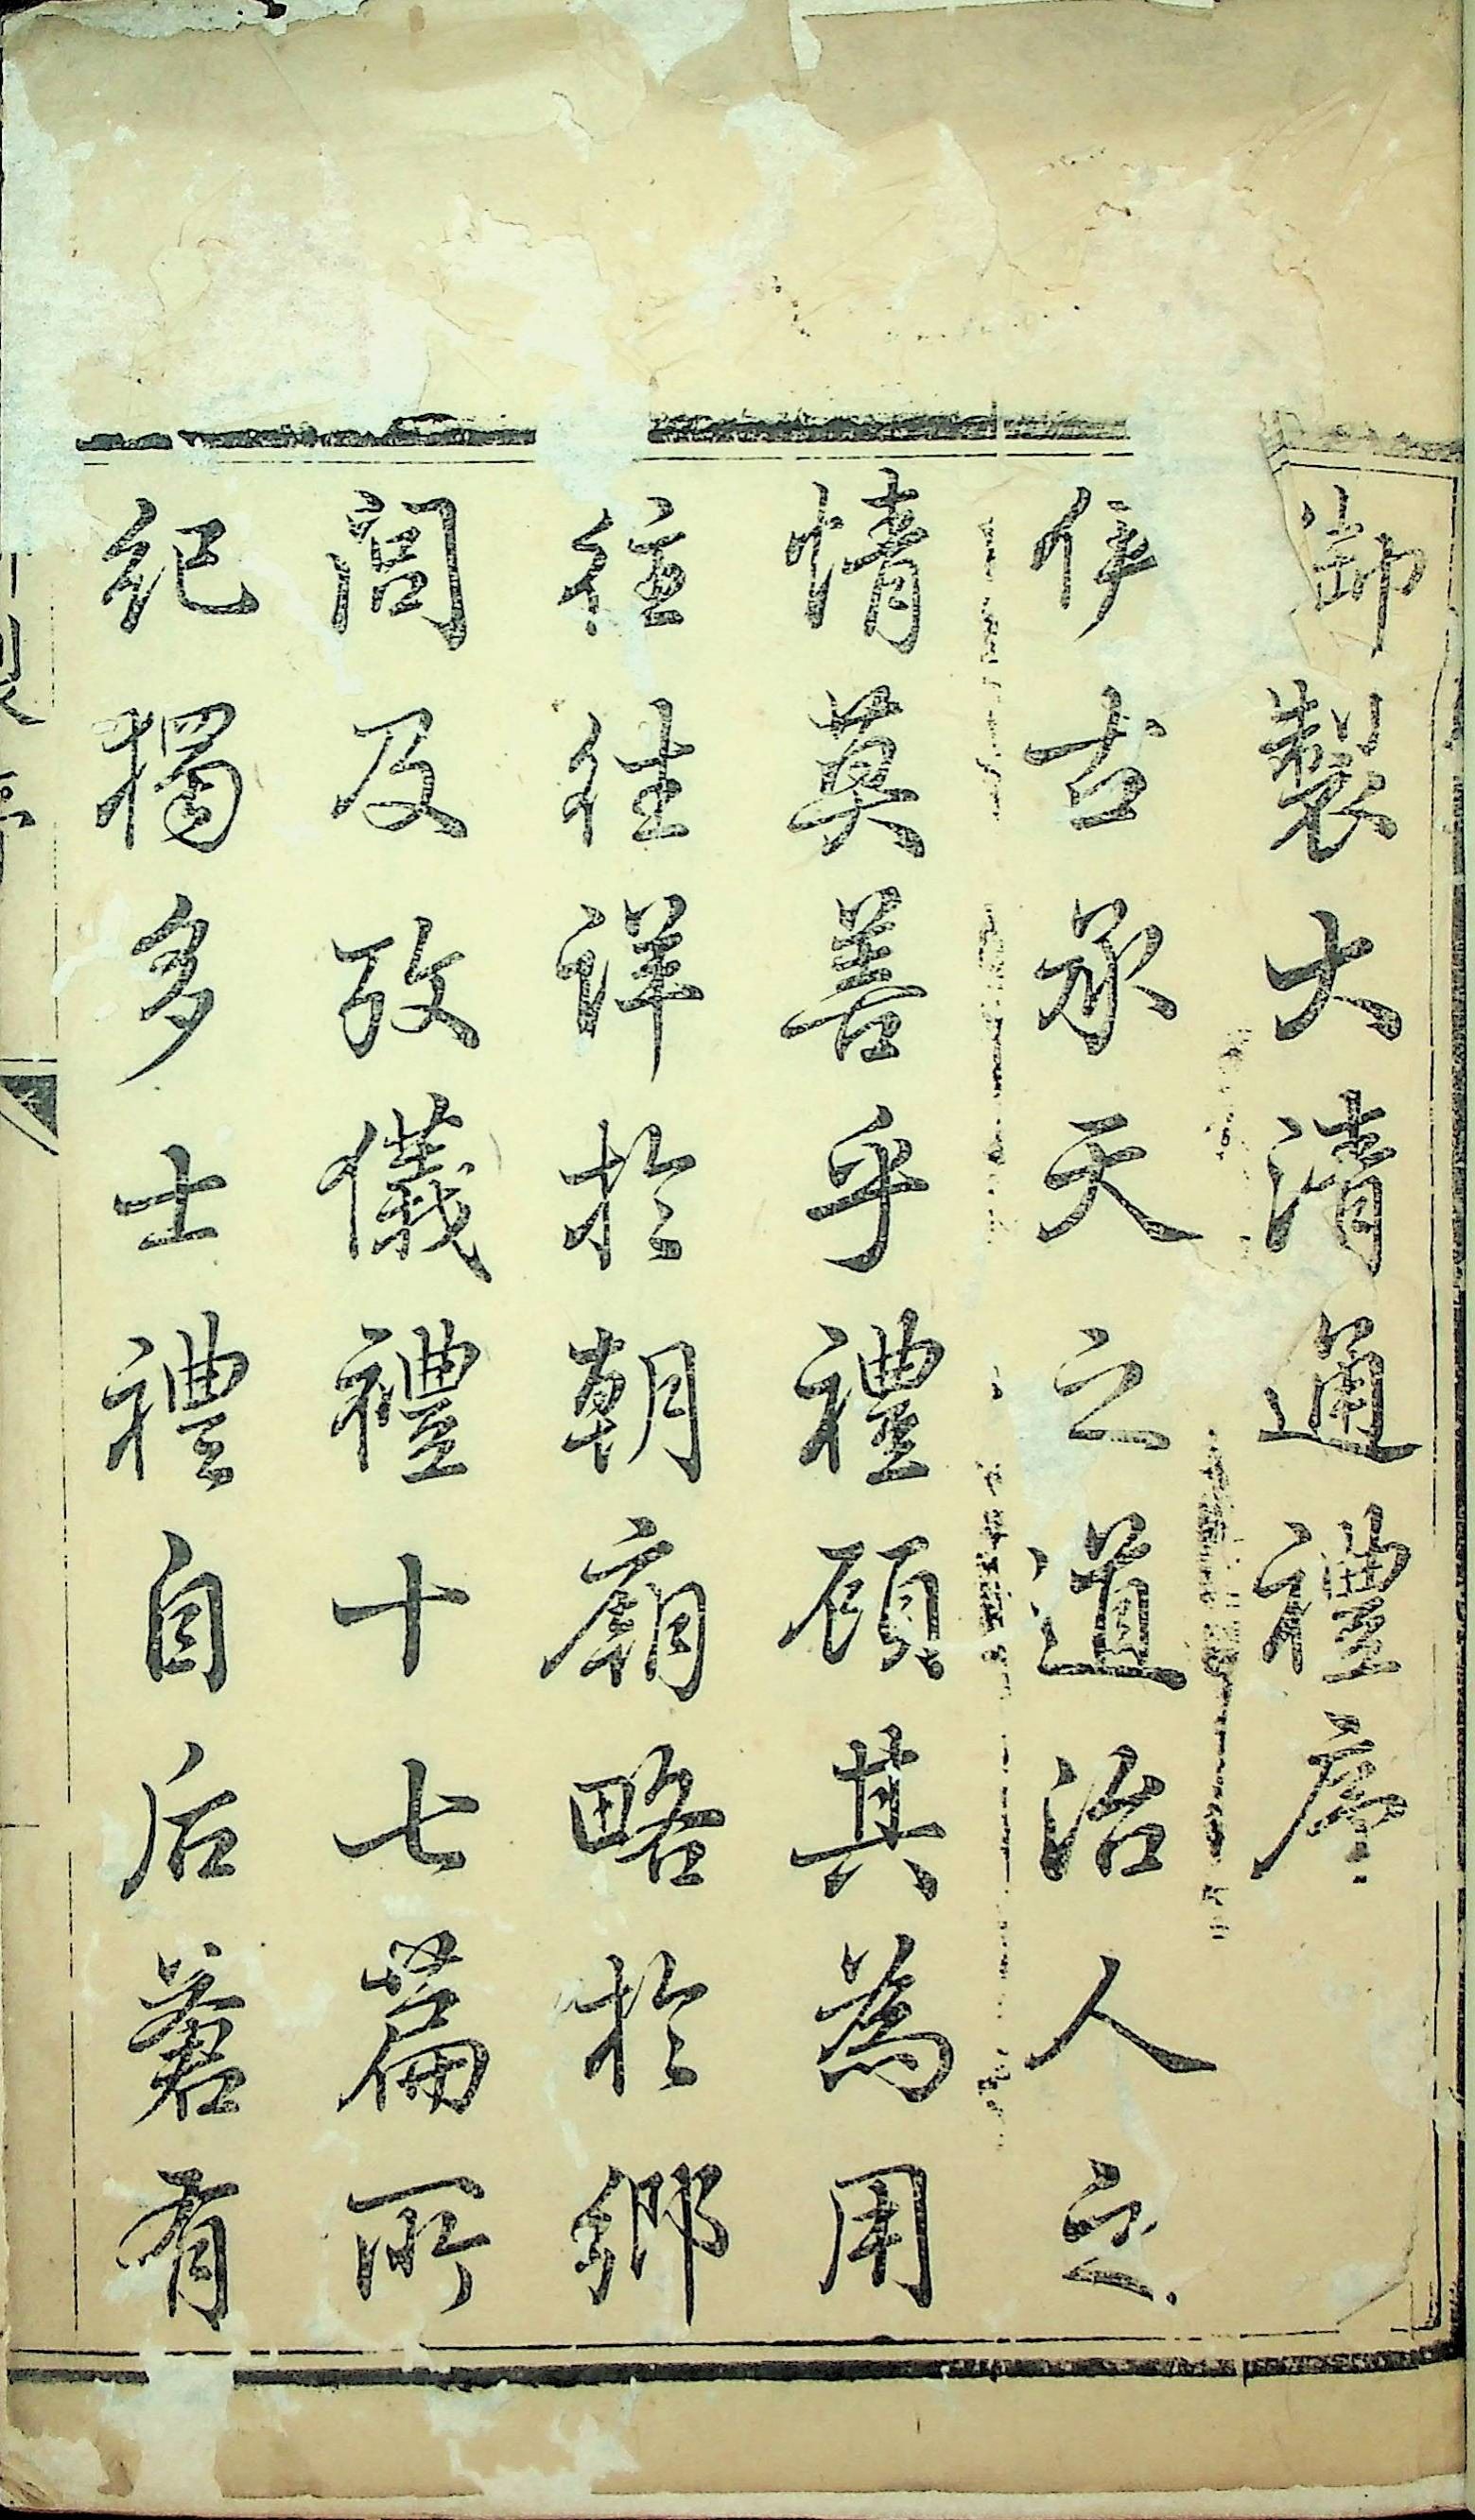 御製大清通禮序
伊古承天之道治人之
情莫善乎禮顧其為用
徃徃詳於朝廟略於鄉
閭及攷儀禮十七篇所
紀獨多士禮自后蒼有